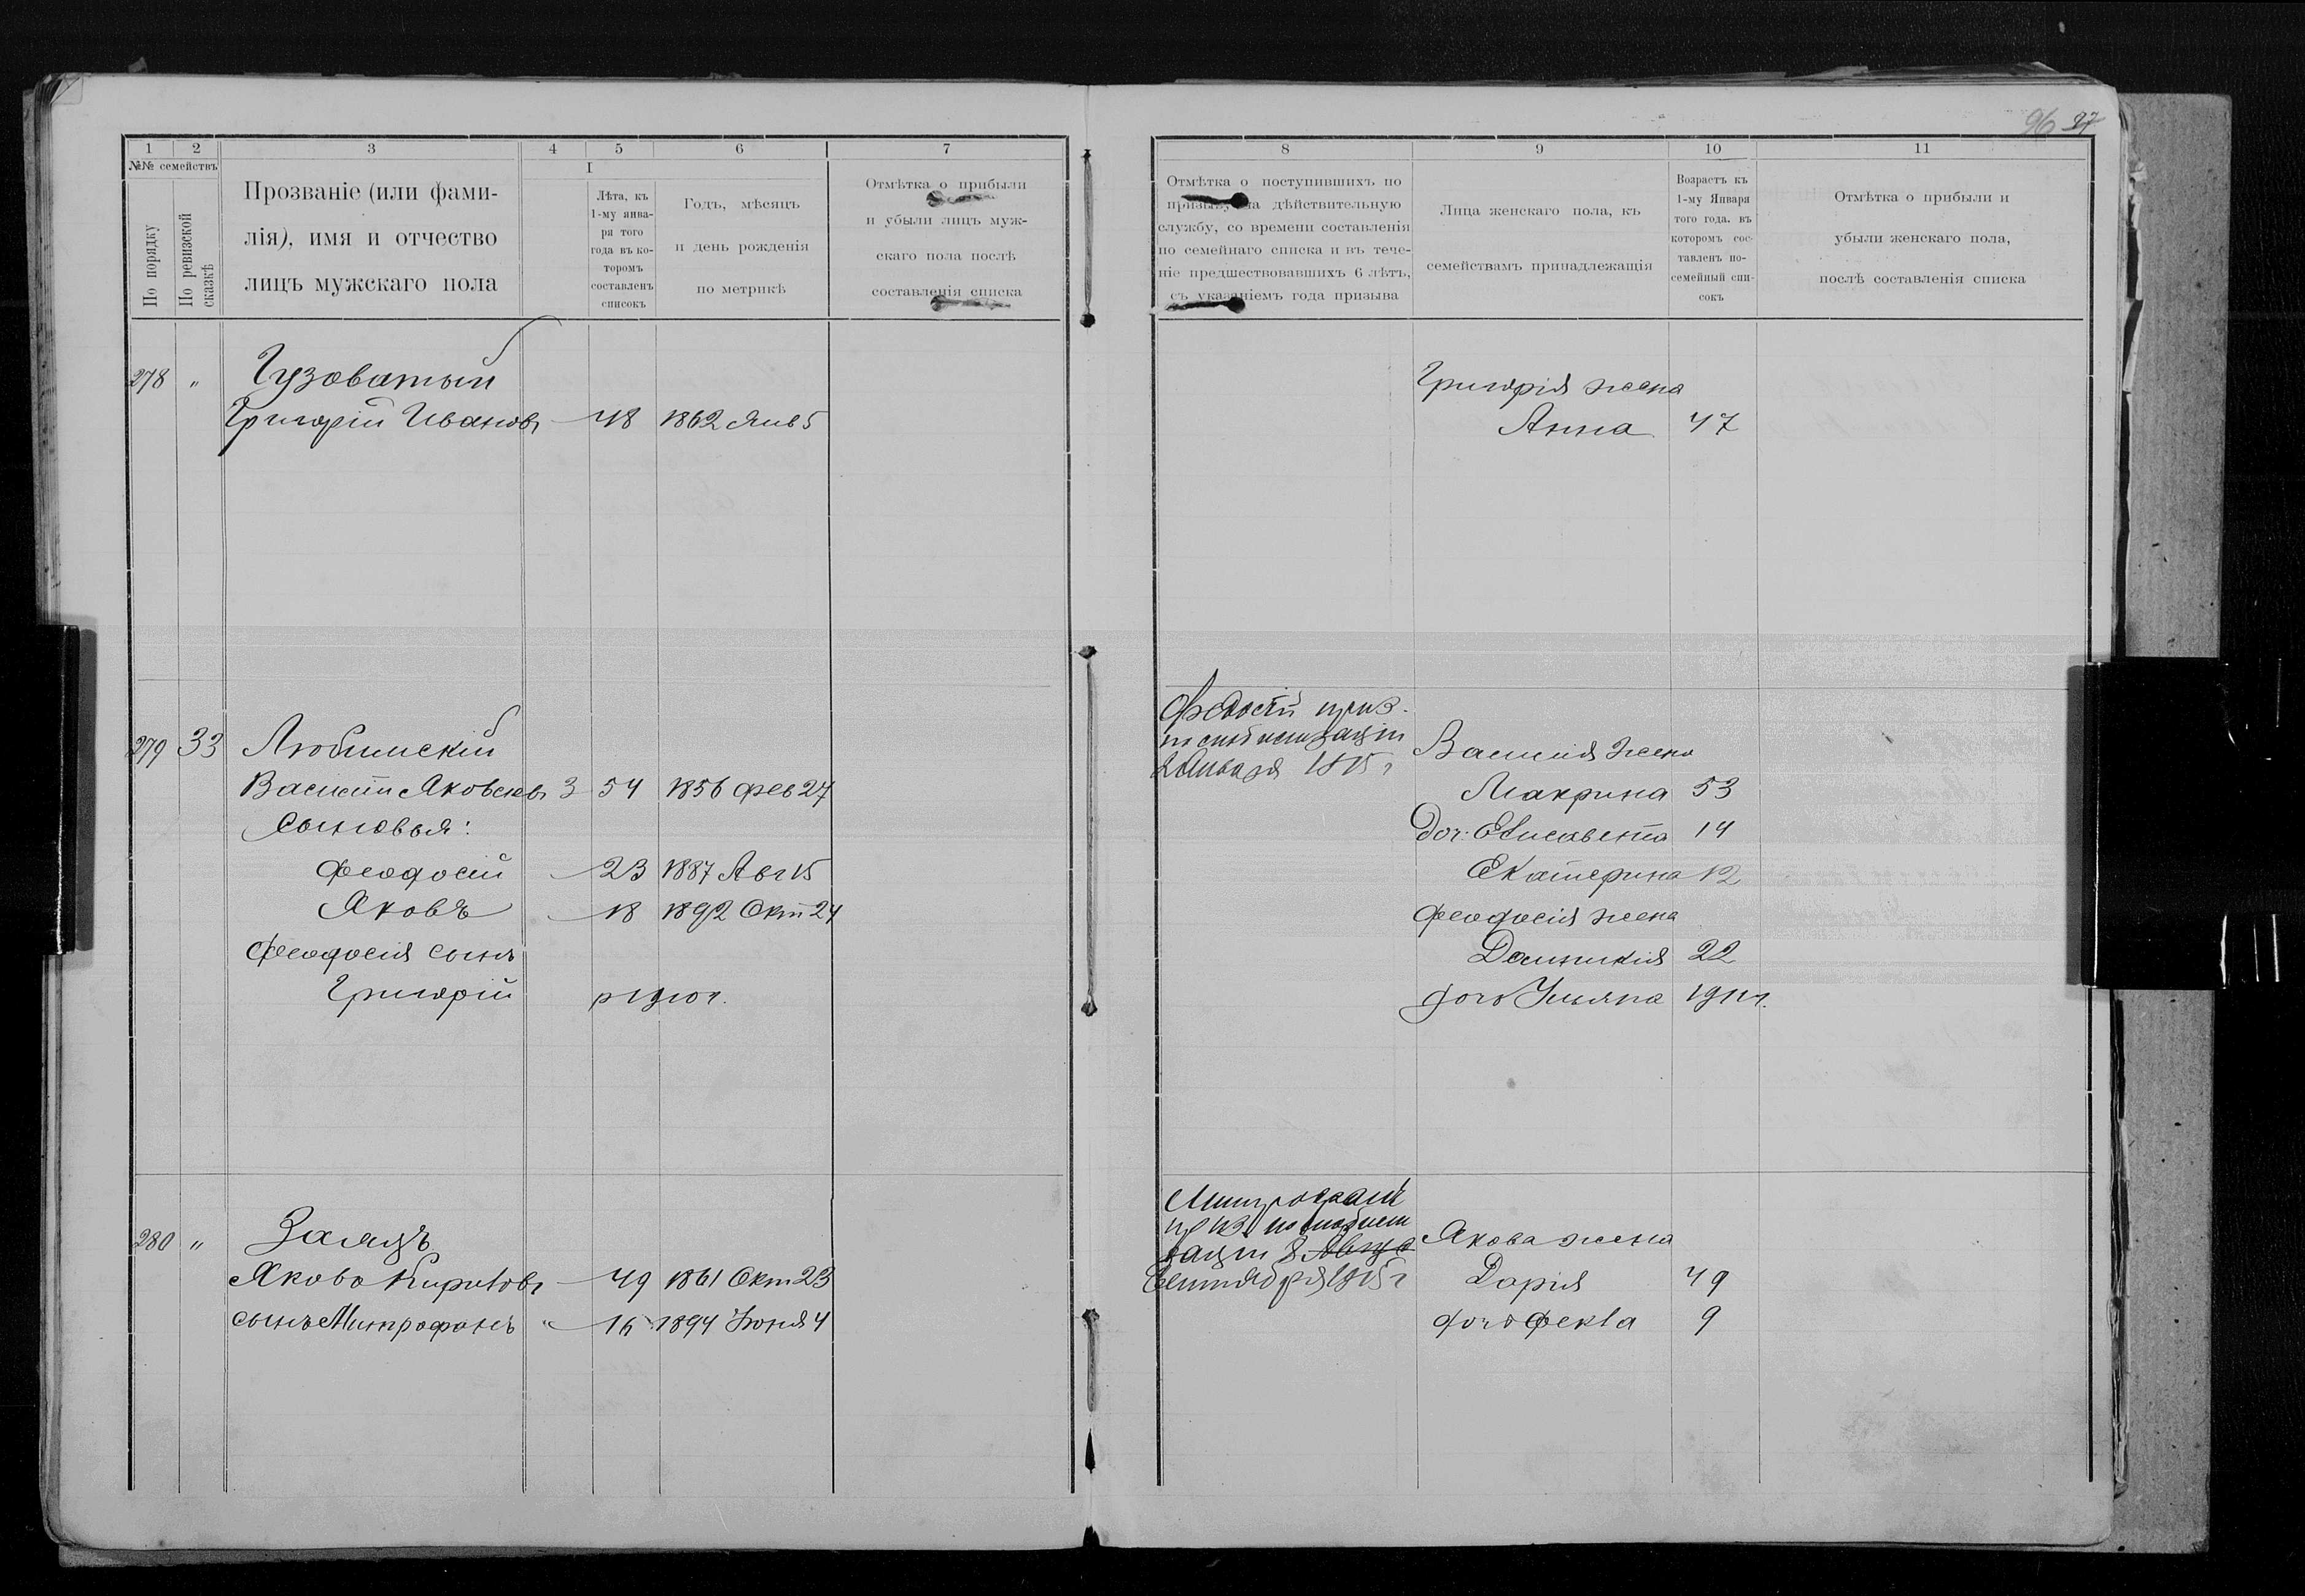 96 97
1 2 3 4 5 6 7
№№ семействъ
По порядку
По ревизской сказкѣ
Прозваніе (или фами-
лія), имя и отчество
лицъ мужскаго пола
I
Лѣта, къ
1-му янва-
ря того
года въ ко-
торомъ
составленъ
списокъ
Годъ, мѣсяцъ
и день рожденія
по метрикѣ
Отмѣтка о прибыли
и убыли лицъ муж-
скаго пола послѣ
составленія списка
278 " Гузоватый
Григорій Ивановъ 48 1862 Янв 5
279 33 Любинскій
Василій Яковлевъ 3 54 1856 фев 27
Сыновья:
Феодосій 23 1887 Авг 15
Яковъ 18 1892 Окт 24
Феодосія сынъ
Григорій
280 " Заяцъ
Яковъ Кириловъ 49 1861 Окт 23
сынъ Митрофанъ " 16 1894 Іюня 4
8 9 10 11
Отмѣтка о поступившихъ по
призыву на дѣйствительную
службу, со времени составленія
по семейнаго списка и въ тече-
ніе предшествовавшихъ 6 лѣтъ,
съ указаніемъ года призыва
Лица женскаго пола, къ
семействамъ принадлежащія
Возрастъ къ
1-му Января
того года, въ
которомъ сос-
тавленъ по-
семейный спи-
сокъ
Отмѣтка о прибыли и
убыли женскаго пола,
послѣ составленія списка
Григорія жена
Анна 47
Федосій приз.
по мобилизаціи
Января 1915 г
Василія жена
Макрина 53
Доч: Елисавета 14
Екатерина 12
Феодосія жена
Домникія 22
дочь Ульяна 1911 г.
Митрофанъ
приз. по мобили
заціи 8 Авгус
Сентября 1915 г
Якова жена
Дарія 49
дочь Фекла 9